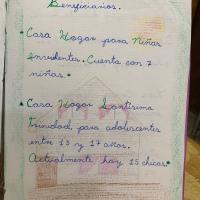 Beneficiarios.
• Casa Hogar para Niñas
Inocentes. Cuenta con 7
niñas.•
• Casa Hogar Santísima
Trinidad, para adolescentes
entre 13 y 17 años.
Actualmente hay 15 chicas.•